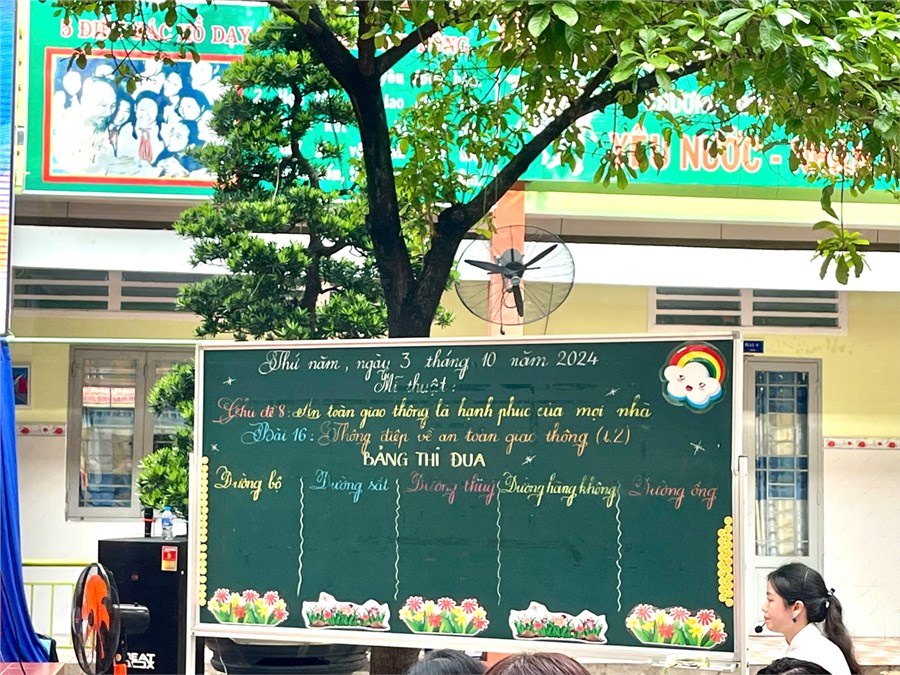 YÊU NƯỚC -
Thứ năm, ngày 3 tháng 10 năm 2024
Mĩ thuật:
Chủ đề 8: An toàn giao thông là hạnh phúc của mọi nhà
Bài 16: Thông điệp về an toàn giao thông (t.2)
BẢNG THI ĐUA
Đường bộ
Đường sắt
Đường thủy
Đường hàng không
Đường ống